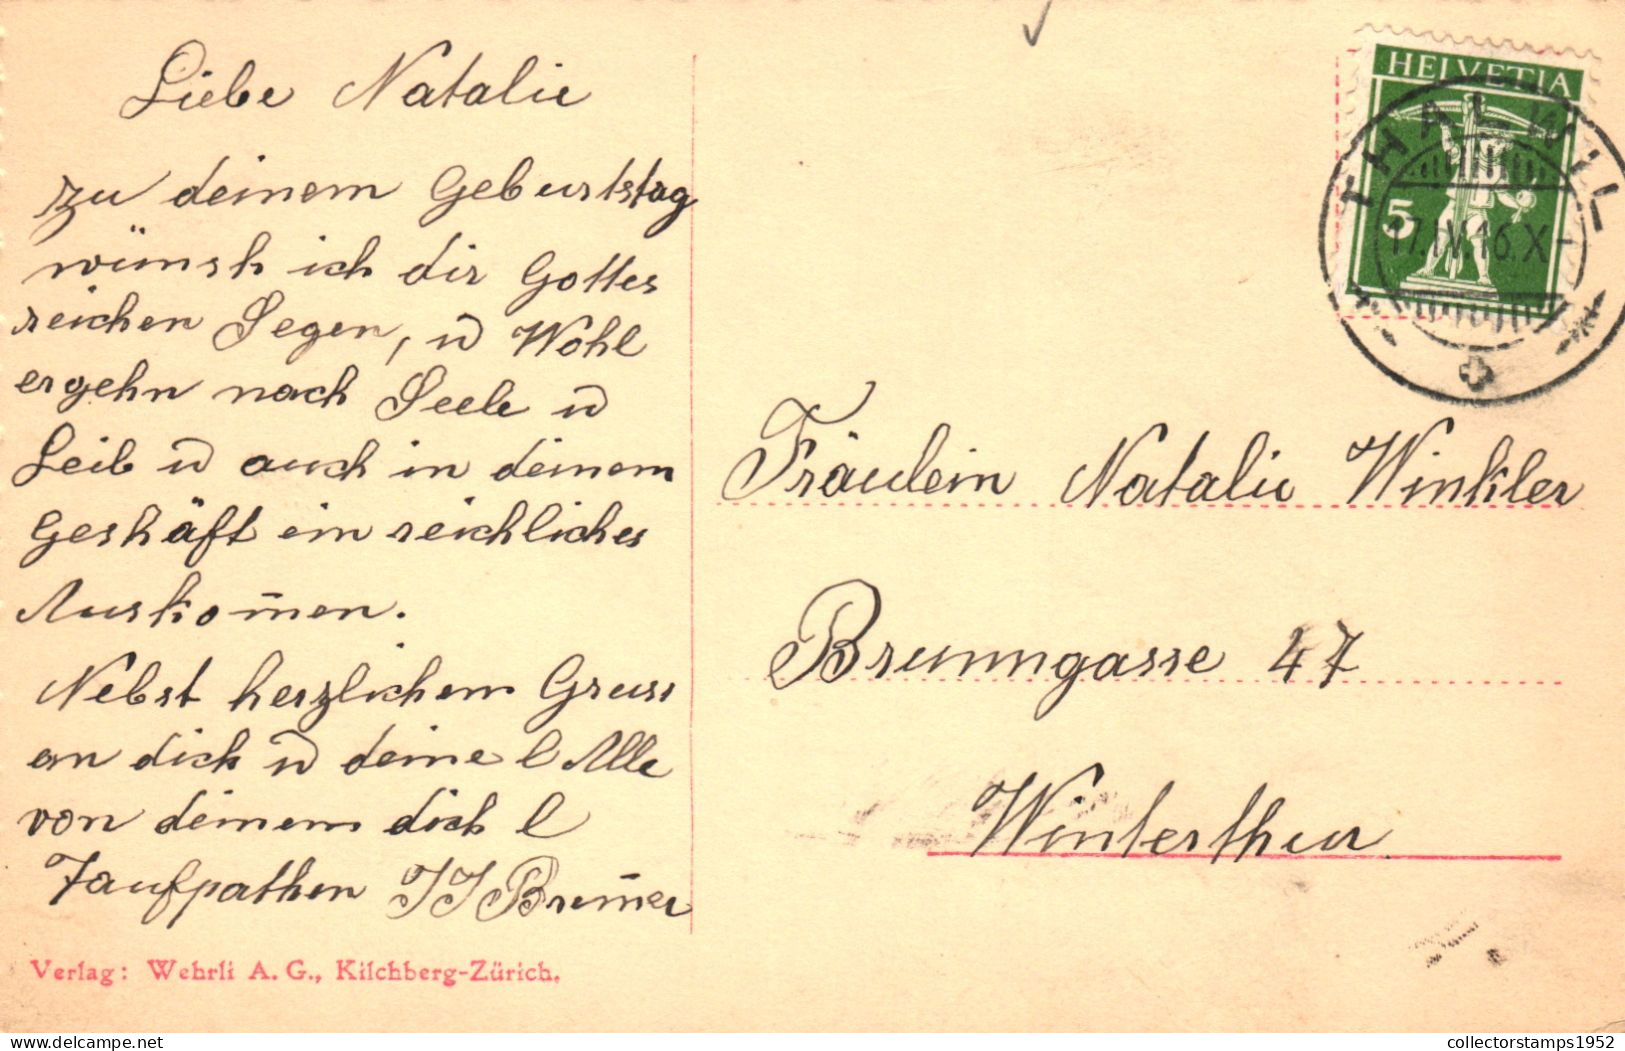 Liebe Natalie
zu deinem Geburtstag
wünsh ich dir Gottes
reichen Segen, u Wohl
ergehn nach Seele u
Leib u auch in deinem
Geshäft ein reichliches
Auskom̅en.
Nebst herzlichem Gruss
an dich u deine l Alle
von deinem dich l
Taufpathen JJ Brun̅er
Verlag: Wehrli A. G., Kilchberg-Zürich.
HELVETIA
5
THALWIL
17.IV.16.X-
Fräulein Natalie Winkler
Brunngasse 47
Winterthur
www.delcampe.net
collectorstamps1952